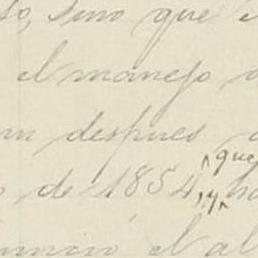 sino que
el manejo
despues
de 1854, y que
el al